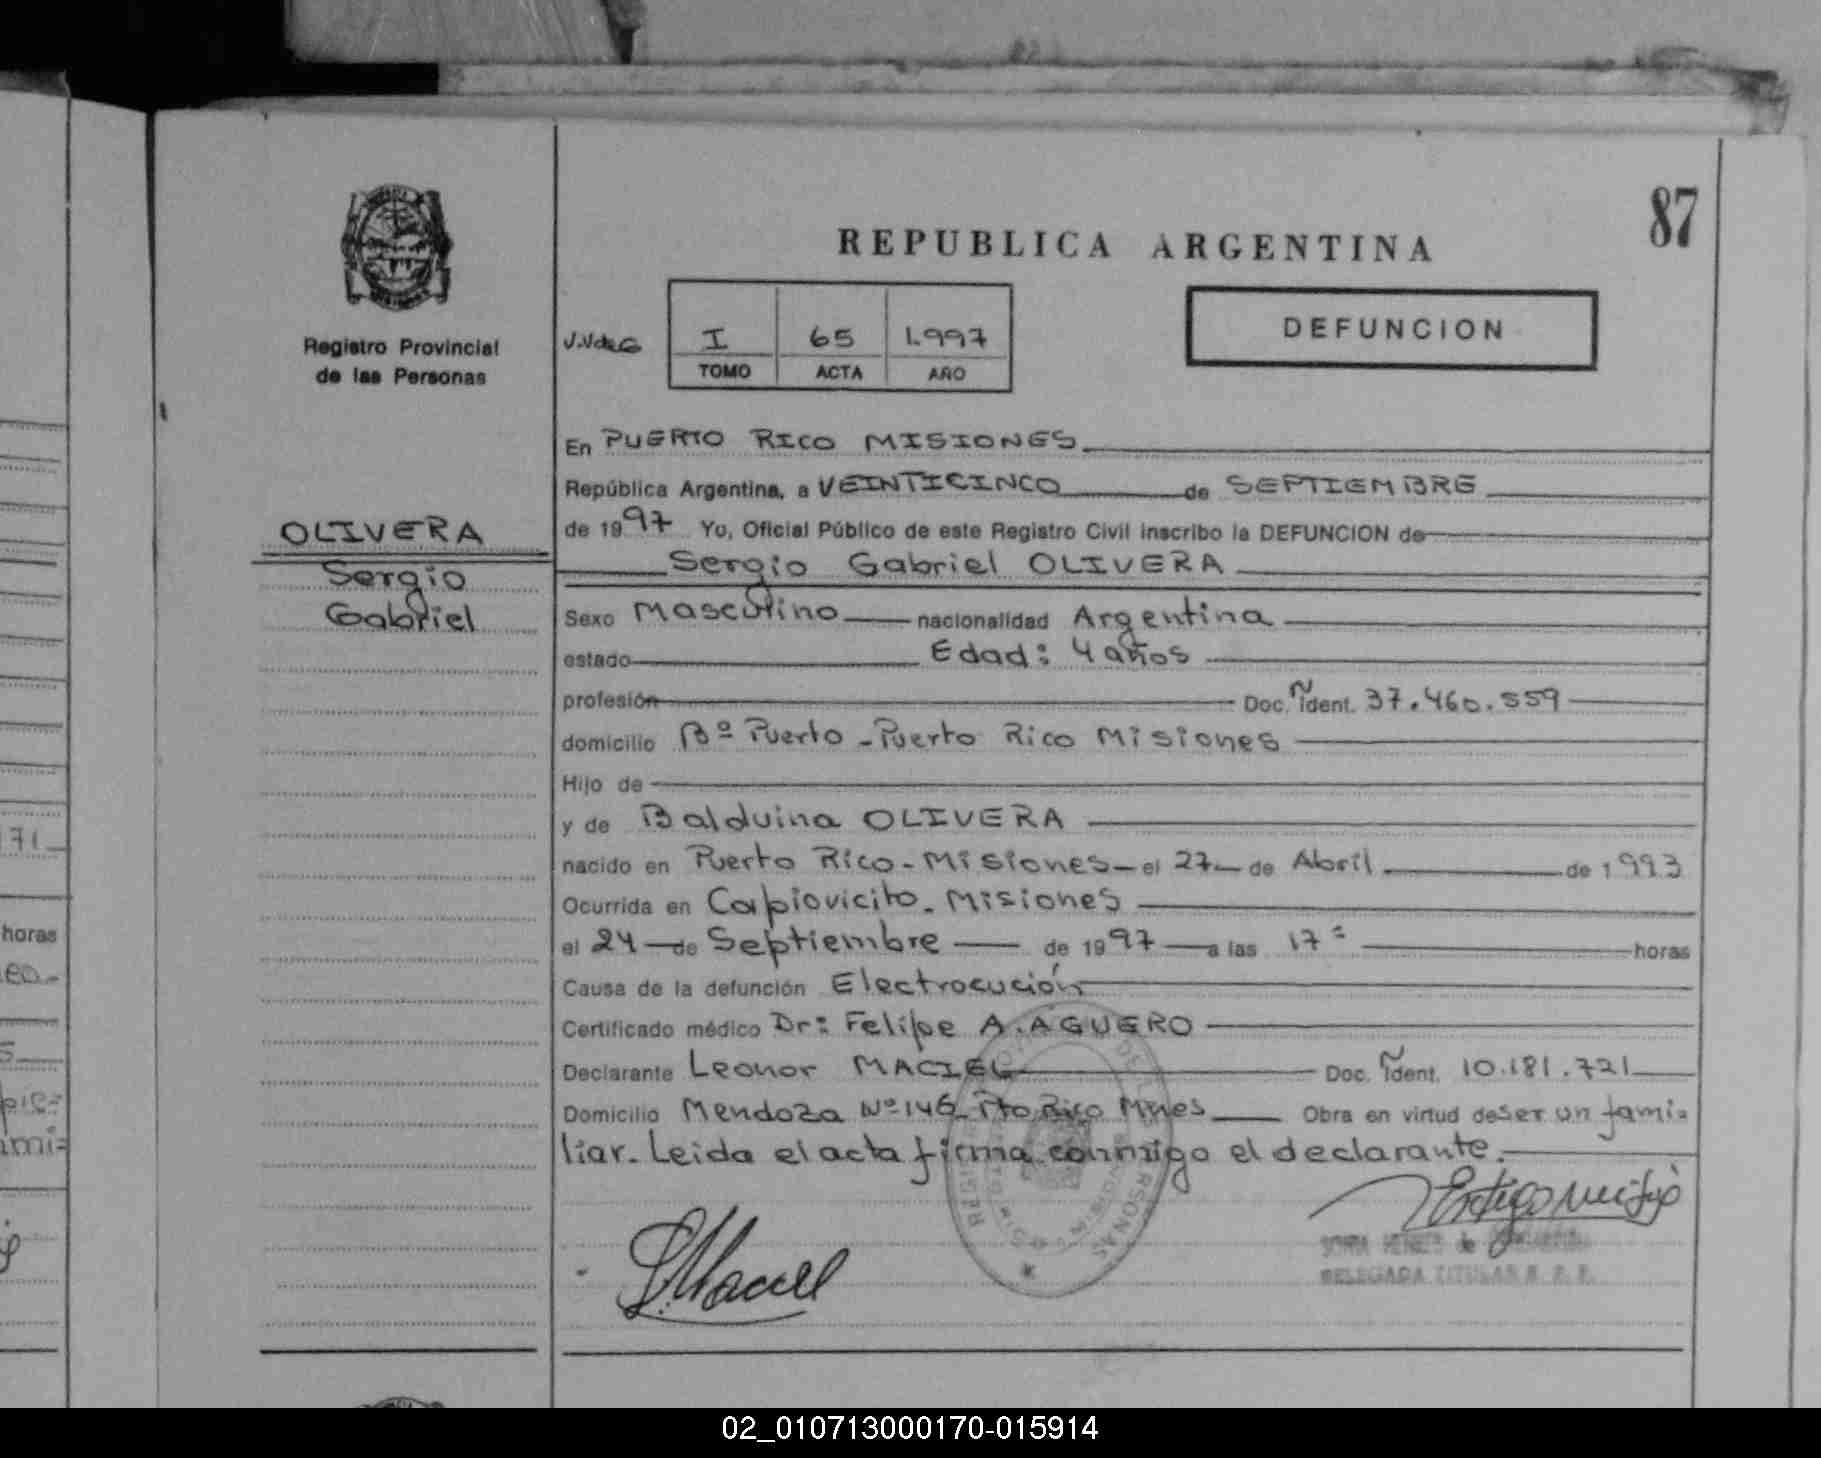 87
REPUBLICA ARGENTINA
Registro Provincial
de las Personas
J.VdeG
I 65 1.997
TOMO ACTA AÑO
DEFUNCION
OLIVERA
Sergio
Gabriel
En PUERTO RICO MISIONES
República Argentina, a VEINTICINCO de SEPTIEMBRE
de 1997 Yo, Oficial Público de este Registro Civil inscribo la DEFUNCION de
Sergio Gabriel OLIVERA
Sexo Masculino nacionalidad Argentina
estado Edad: 4 años
profesión Doc. Ident. 37.460.559
domicilio Bº Puerto - Puerto Rico Misiones
Hijo de
y de Balduina OLIVERA
nacido en Puerto Rico - Misiones - el 27 de Abril de 1993
Ocurrida en Capiovicito. Misiones
el 24 de Septiembre de 1997 a las 17= horas
Causa de la defunción Electrocución
Certificado médico Dr: Felipe A. AGUERO
Declarante Leonor MACIEL Doc. Ident. 10.181.721
Domicilio Mendoza Nº 146 - Pto Rico Mnes Obra en virtud de ser un fami=
liar. Leida el acta firma conmigo el declarante.
LMaciel
DELEGADA TITULAR R. P. P.
171
horas
02_010713000170-015914